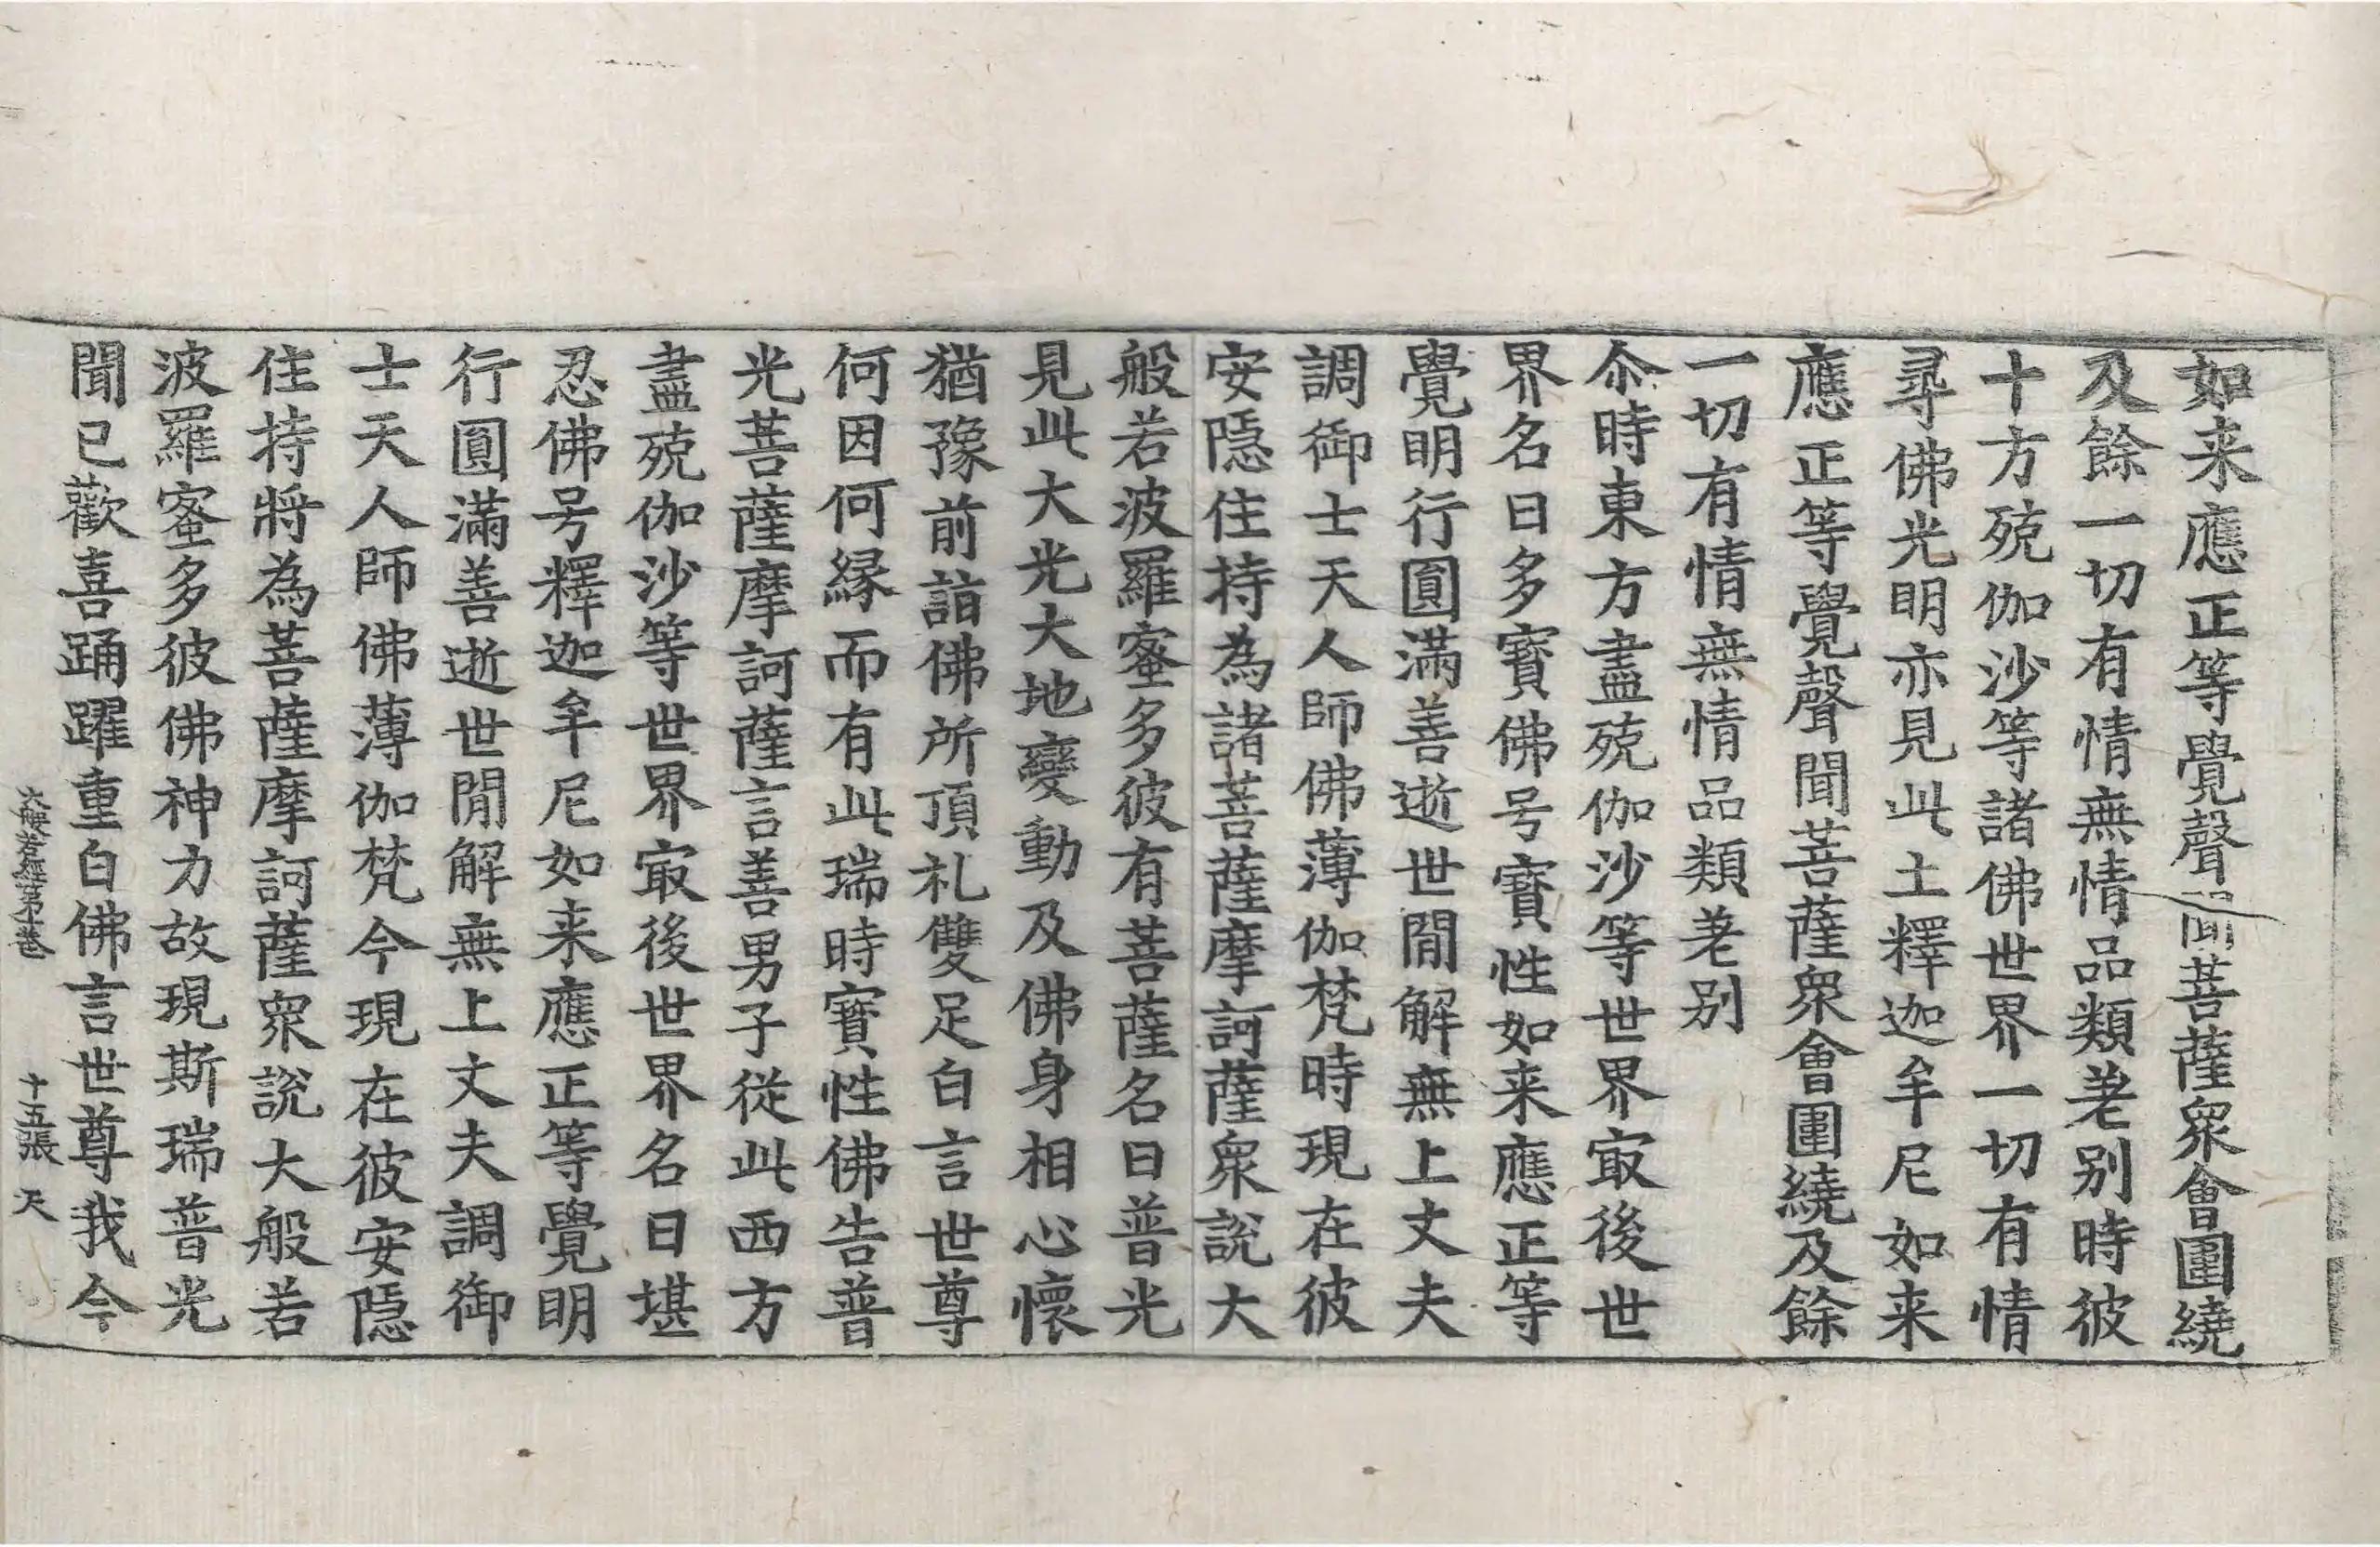 如来應正等覺聲聞菩薩衆會圍繞
及餘一切有情無情品類差别時彼
十方殑伽沙等諸佛世界一切有情
尋佛光明亦見此土釋迦牟尼如来
應正等覺聲聞菩薩衆會圍繞及餘
一切有情無情品類差别
尒時東方盡殑伽沙等世界㝡後世
界名曰多寳佛号寳性如来應正等
覺明行圓滿善逝世閒解無上丈夫
調御士天人師佛薄伽梵時現在彼
安隱住持為諸菩薩摩訶薩衆說大
般若波羅蜜多彼有菩薩名曰普光
見此大光大地變動及佛身相心懷
猶豫前詣佛所頂礼雙足白言世尊
何因何縁而有此瑞時寳性佛告普
光菩薩摩訶薩言善男子從此西方
盡殑伽沙等世界㝡後世界名曰堪
忍佛号釋迦牟尼如来應正等覺明
行圓滿善逝世閒解無上丈夫調御
士天人師佛薄伽梵今現在彼安隱
住持將為菩薩摩訶薩衆說大般若
波羅蜜多彼佛神力故現斯瑞普光
聞已歡喜踊躍重白佛言世尊我今
大般若經第一卷 十五張 天